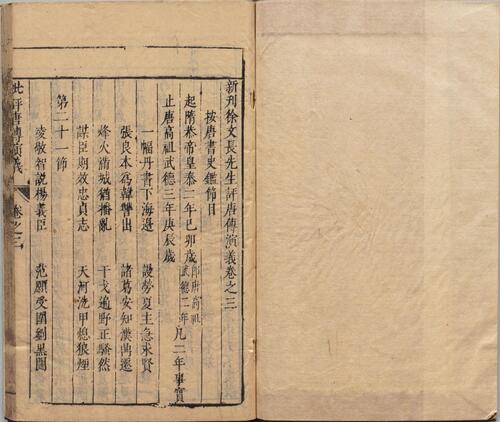 新刊徐文長先生評唐傳演義卷之三
按唐書史鑑節目
起隋恭帝皇泰二年己卯歲 即唐高祖武德二年 凡二年事實
止唐高祖武德三年庚辰歲
一幅丹書下海邊 謾勞夏主急求賢
張良本為韓讐出 諸葛安知漢禹遷
烽火滿城猶播亂 干戈遍野正騷然
謀臣期效忠貞志 天河洗甲熄狼煙
第二十一節
凌敬智說楊義臣 范願受困劉黑闥
批評唐傳演義 卷之三